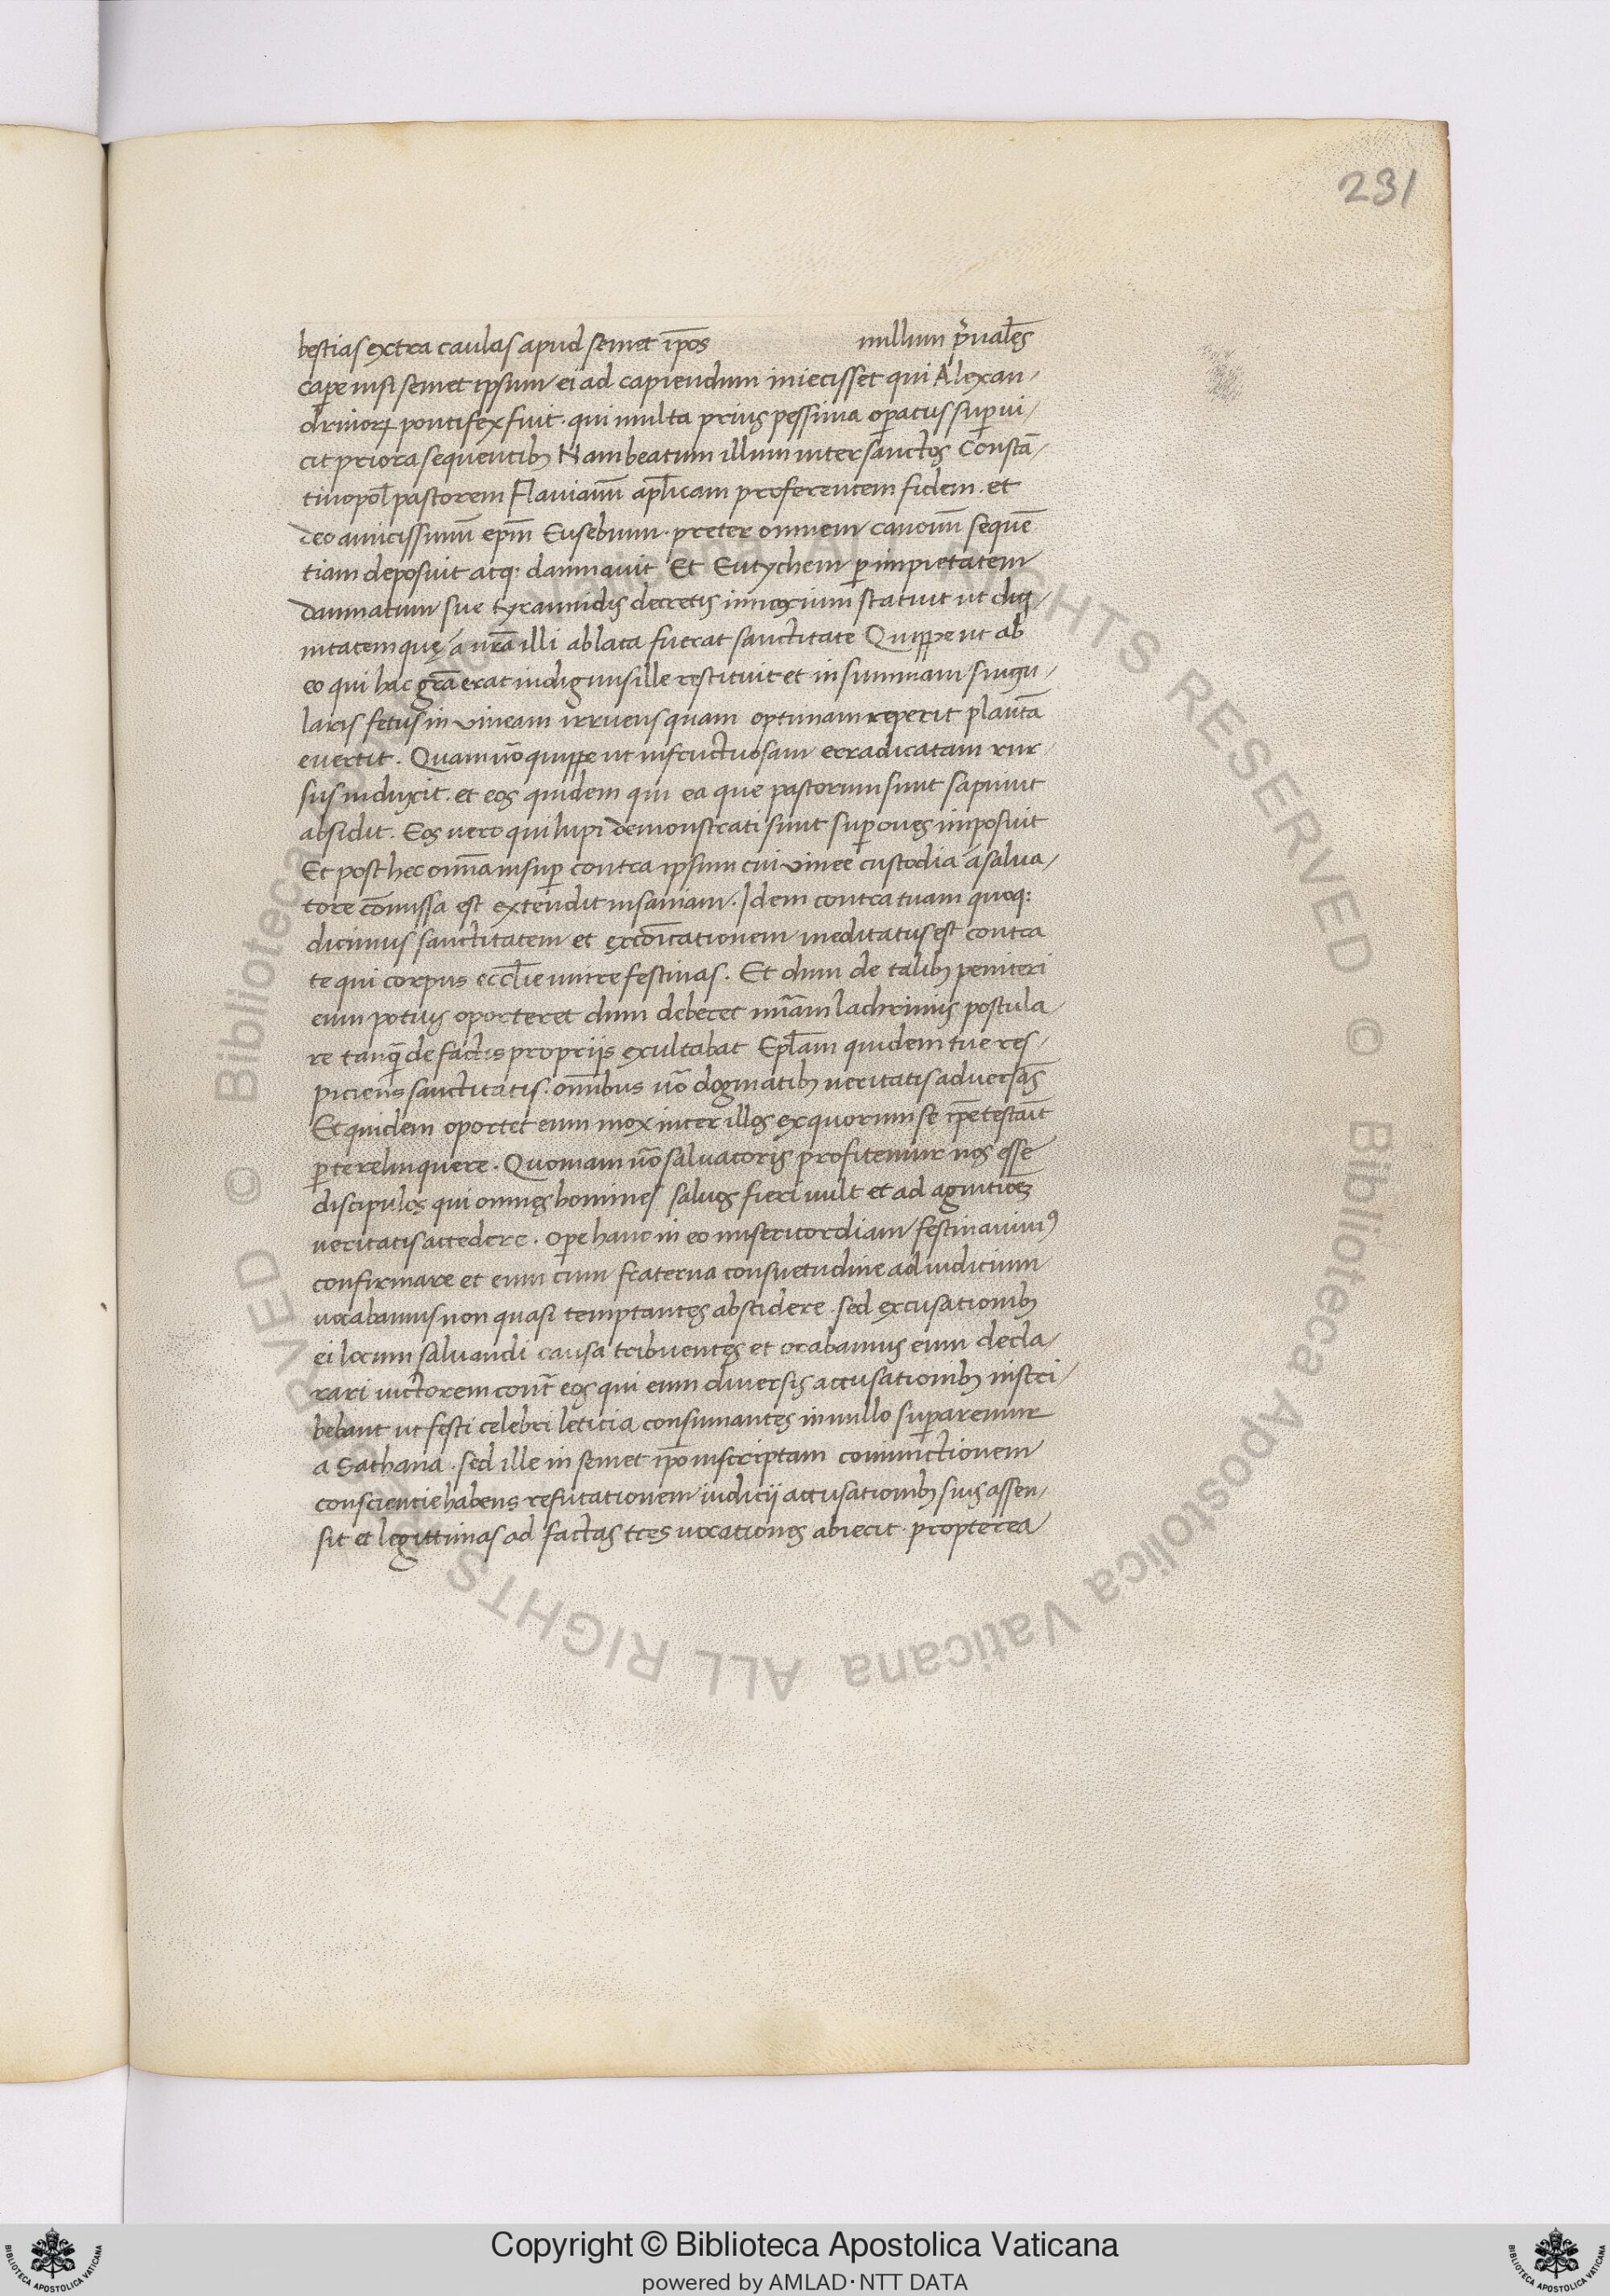 231
bestias extra caulas apud semet ip̄os nullum p̄ualēs
cap̲e nisi semet ipsum ei ad capiendum iniecisset qui Alexan-
drinoꝝ pontifex fuit. qui multa prius pessima op̲atus sup̲ui-
cit priora sequentibꝫ Nam beatum illum inter sanctos Constā-
tinopol̄ pastorem Flavianū apl̄icam proferentem fidem. et
deo amicissimū ep̄m Eusebium. preter omnem canonū sequē
tiam deposuit atqꝫ damnavit Et Eutychem p̲ impietatem
damnatum sue tyrannidis decretis innoxium statuit ut dig-
nitatemque á ur̄a illi ablata fuerat sanctitate Quippe ut ab
eo qui hac gr̄a erat indignus ille restituit et in summam singu-
laris fetus in vineam irruens quam optimam reperit plantā
evertit. Quam uō quippe ut infructuosam erradicatam rur-
sus induxit. et eos quidem qui ea que pastorum sunt sapiunt
absidit. Eos uero qui lupi demonstrati sunt sup̲ oues imposuit
Et post hec om̄ia insup̲ contra ipsum cui vinee custodia á salva-
tore cōmissa est extendit insaniam. Idem contra tuam quoqꝫ
dicimus sanctitatem et excōicationem meditatus est contra
te qui corpus eccl̄ie unire festinas. Et dum de talibꝫ peniteri
eum potius oporteret dum deberet mīam lachrimis postula-
re tanq̄ de factis propriis exultabat Ep̄lam quidem tue res-
piciens sanctitatis. om̄ibus uō dogmatibꝫ ueritatis adversās
Et quidem oportet eum mox inter illos ex quorum se ip̄e testaūt
p̲te relinquere. Quoniam uō salvatoris profitemur nos esse
discipulos qui omnes homines salvos fieri vult et ad agnitioēꝫ
veritatis accedere. ope hanc in eo misericordiam festinauimꝰ
confirmare et eum cum fraterna consuetudine ad iudicium
vocabamus non quasi temptantes abscidere. sed excusationibꝫ
ei locum salvandi causa tribuentes et orabamus eum decla-
rari victorem cont̄ eos qui eum diversis accusationibꝫ inscri-
bebant ut festi celebri leticia consumantes in nullo sup̲aremur
a Sathana. sed ille in semet ip̄o inscriptam coniunctionem
conscientie habens refutationem iudicii accusationibꝫ suis assen-
sit et legittimas ad factas tres vocationes abiecit. propterea
© Biblioteca Apostolica Vaticana ALL RIGHTS RESERVED © Biblioteca Apostolica Vaticana ALL RIGHTS RESERVED
BIBLIOTECA APOSTOLICA VATICANA
Copyright © Biblioteca Apostolica Vaticana
powered by AMLAD·NTT DATA
BIBLIOTECA APOSTOLICA VATICANA